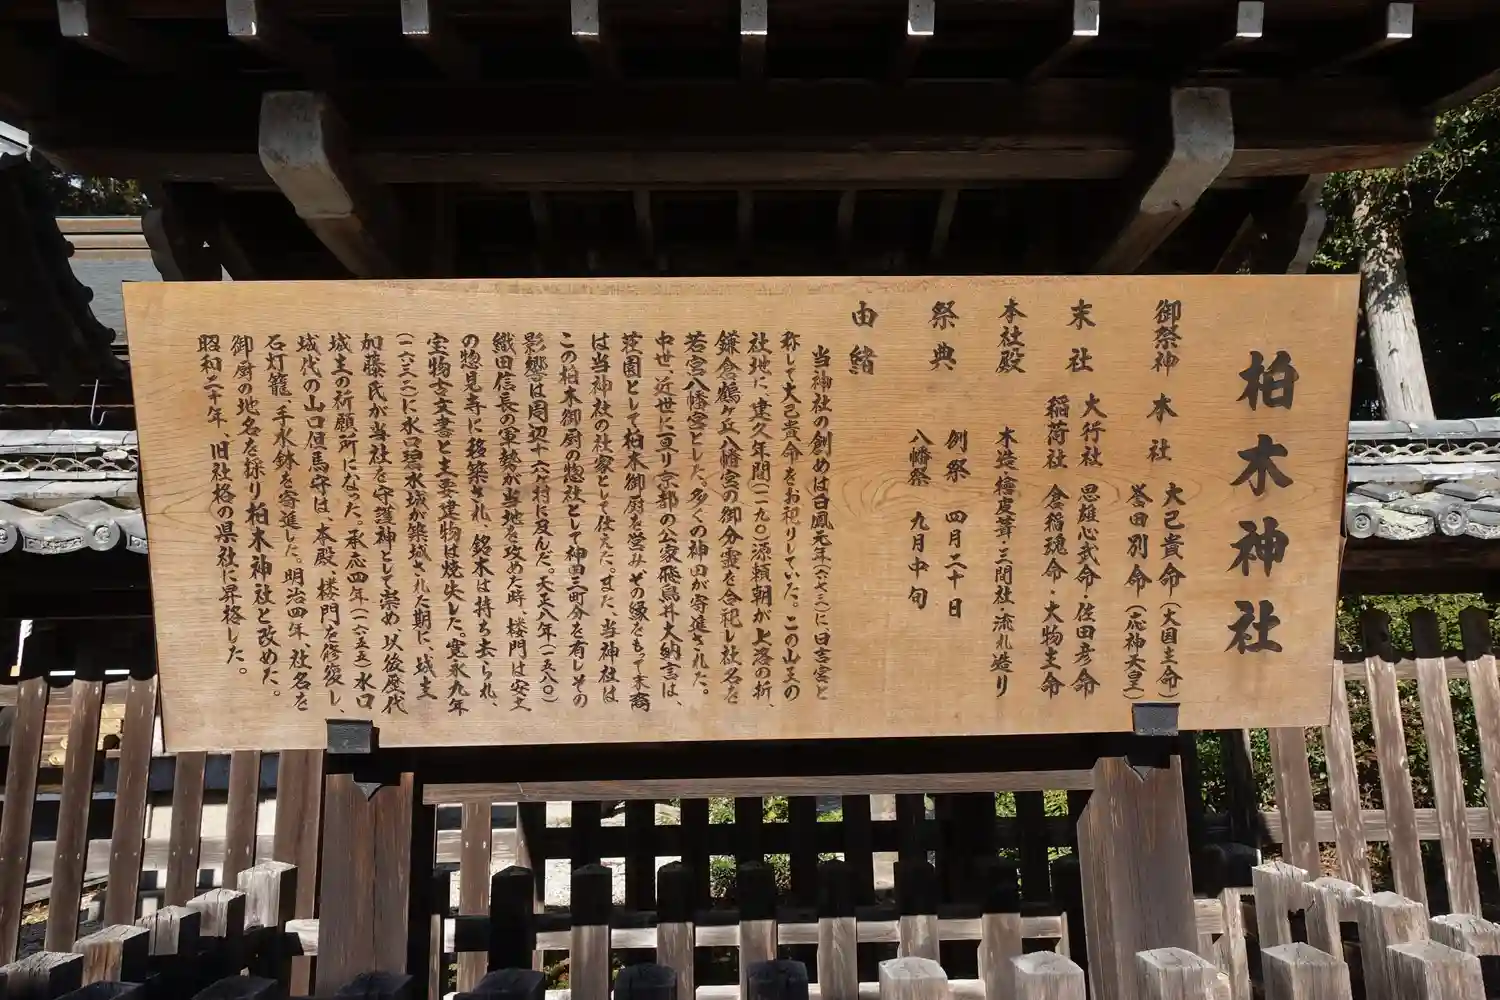 柏木神社
御祭神 本社 大己貴命(大国主命)
誉田別命(応神天皇)
末社 大行社 思雄心武命・佐田彦命
稲荷社 倉稲魂命・大物主命
本社殿 木造檜皮葺・三間社・流れ造り
祭典 例祭 四月二十日
八幡祭 九月中旬
由緒
当神社の創めは白鳳元年(六七三)に日吉宮と
称して大己貴命をお祀りしていた。この山王の
社地に、建久年間(一一九〇)源頼朝が上洛の折、
鎌倉鶴ヶ丘八幡宮の御分霊を合祀し社名を
若宮八幡宮とした。多くの神田が寄進された。
中世、近世に亘り京都の公家飛鳥井大納言は、
荘園として柏木御厨を営み、その縁をもって末裔
は当神社の社家として仕えた。また、当神社は
この柏木御厨の惣社として神田三町分を有しその
影響は周辺十六ヶ村に及んだ。天正八年(一五八〇)
織田信長の軍勢が当地を攻めた時、楼門は安土
の惣見寺に移築され、銘木は持ち去られ、
宝物古文書と主要建物は焼失した。寛永九年
(一六三二)に水口碧水城が築城された期に、城主
加藤氏が当社を守護神として崇め、以後歴代
城主の祈願所になった。承応四年(一六五五)水口
城代の山口但馬守は、本殿、楼門を修復し、
石灯籠、手水鉢を寄進した。明治四年、社名を
御厨の地名を採り柏木神社と改めた。
昭和二十年、旧社格の県社に昇格した。